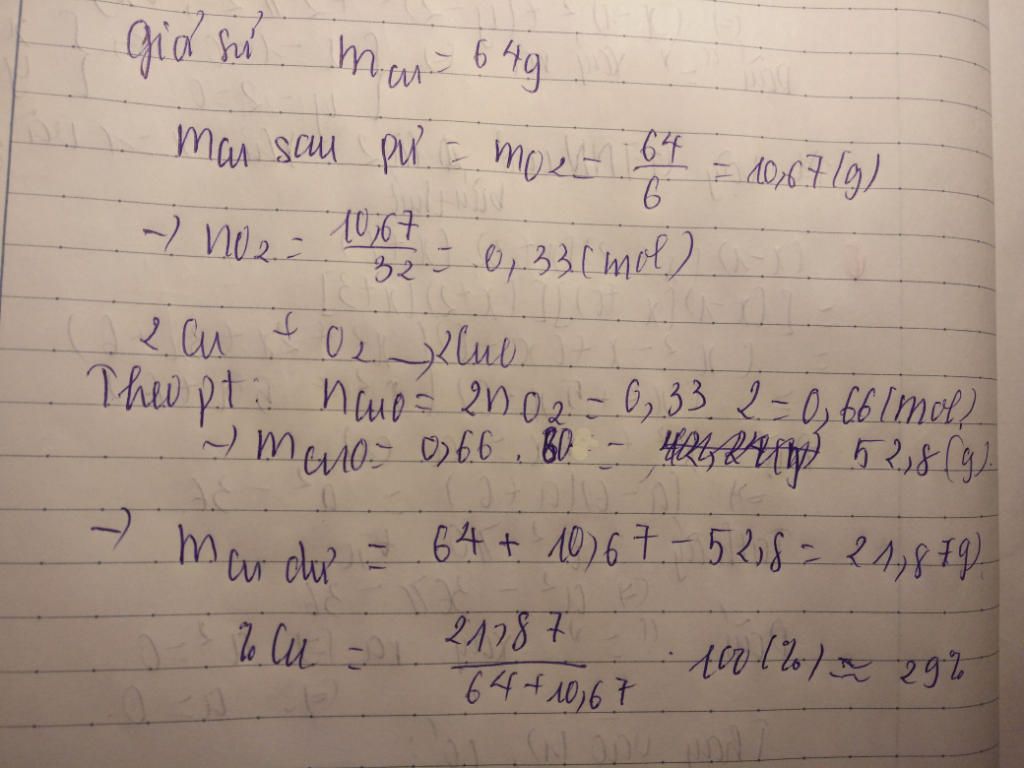 Giả sử m_Cu = 64g
m_Cu sau pứ = m_O2 = 64/6 = 10,67(g)
→ n_O2 = 10,67/32 = 0,33(mol)
2Cu + O2 → 2CuO
Theo pt: n_CuO = 2n_O2 = 0,33.2 = 0,66(mol)
→ m_CuO = 0,66.80 = 52,8(g)
→ m_Cu dư = 64 + 10,67 - 52,8 = 21,87g)
%Cu = 21,87/(64+10,67) . 100(%) ≈ 29%